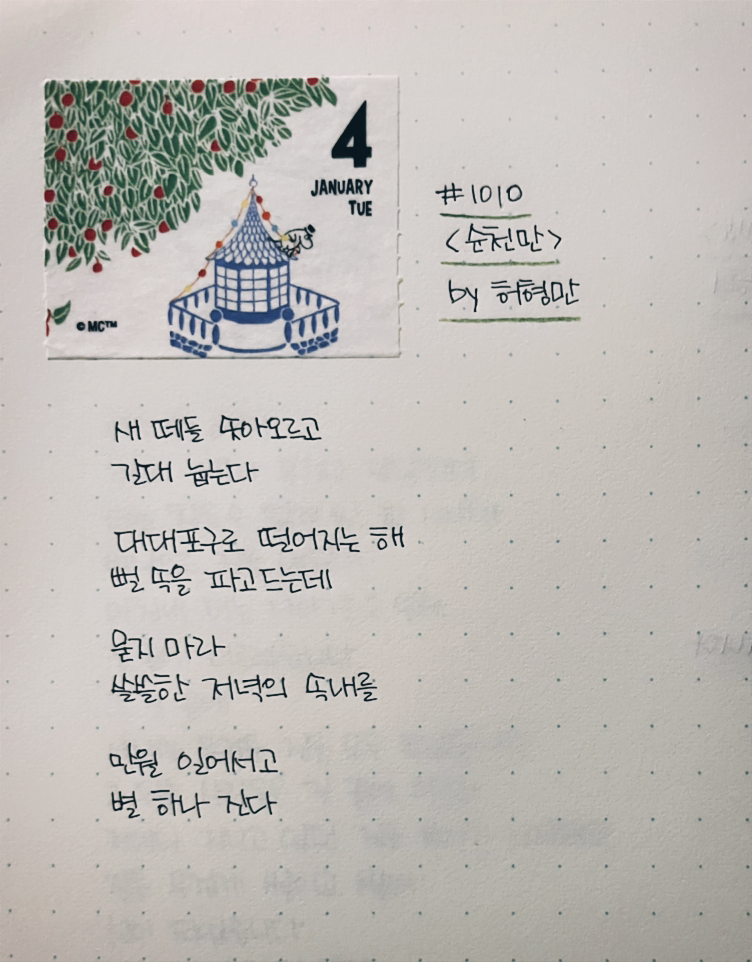 4
JANUARY
TUE
© MC™
#1010
<순천만>
by 허형만
새 떼들 솟아오르고
갈대 눕는다
대대포구로 떨어지는 해
뻘 뚝을 파고드는데
묻지 마라
쓸쓸한 저녁의 속내를
만월 일어서고
별 하나 진다